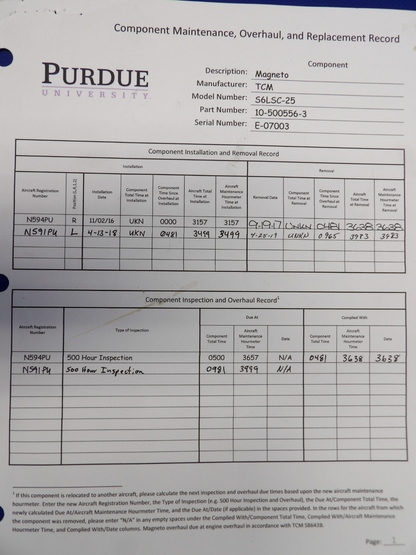 Component Maintenance, Overhaul, and Replacement Record
PURDUE
UNIVERSITY
Component
Description: Magneto
Manufacturer: TCM
Model Number: S6LSC-25
Part Number: 10-500556-3
Serial Number: E-07003
Component Installation and Removal Record
Installation Removal
Aircraft Registration Number Position (L,R,1,2) Installation Date Component Total Time at Installation Component Time Since Overhaul at Installation Aircraft Total Time at Installation Aircraft Maintenance Hourmeter at Installation Removal Date Component Total Time at Removal Component Time Since Overhaul at Removal Aircraft Total Time at Removal Aircraft Maintenance Hourmeter at Removal
N594PU R 11/02/16 UKN 0000 3157 3157 9-19-17 UNKN 0481 3638 3638
N591PU L 4-13-18 UKN 0481 3499 3499 UNKN 0965 3983 3983
Component Inspection and Overhaul Record¹
Due At Complied With
Aircraft Registration Number Type of Inspection Component Total Time Aircraft Maintenance Hourmeter Time Date Component Total Time Aircraft Maintenance Hourmeter Time Date
N594PU 500 Hour Inspection 0500 3657 N/A 0481 3638 3638
N591PU 500 Hour Inspection 0981 3999 N/A
¹ If this component is relocated to another aircraft, please calculate the next inspection and overhaul due times based upon the new aircraft maintenance
hourmeter. Enter the new Aircraft Registration Number, the Type of Inspection (e.g. 500 Hour Inspection and Overhaul), the Due At/Component Total Time, the
newly calculated Due At/Aircraft Maintenance Hourmeter Time, and the Due At/Date (if applicable) in the spaces provided. In the rows for the aircraft from which
the component was removed, please enter "N/A" in any empty spaces under the Complied With/Component Total Time, Complied With/Aircraft Maintenance
Hourmeter Time, and Complied With/Date columns. Magneto overhaul due at engine overhaul in accordance with TCM SB643B.
Page: 1